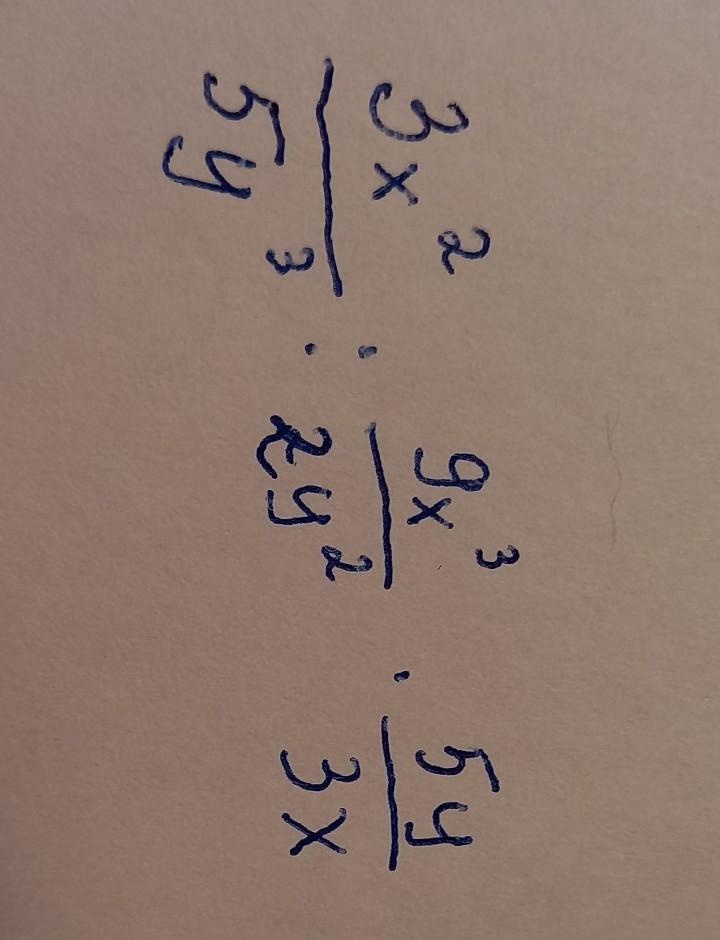 3x²/5y³ : 9x³/2y² · 5y/3x